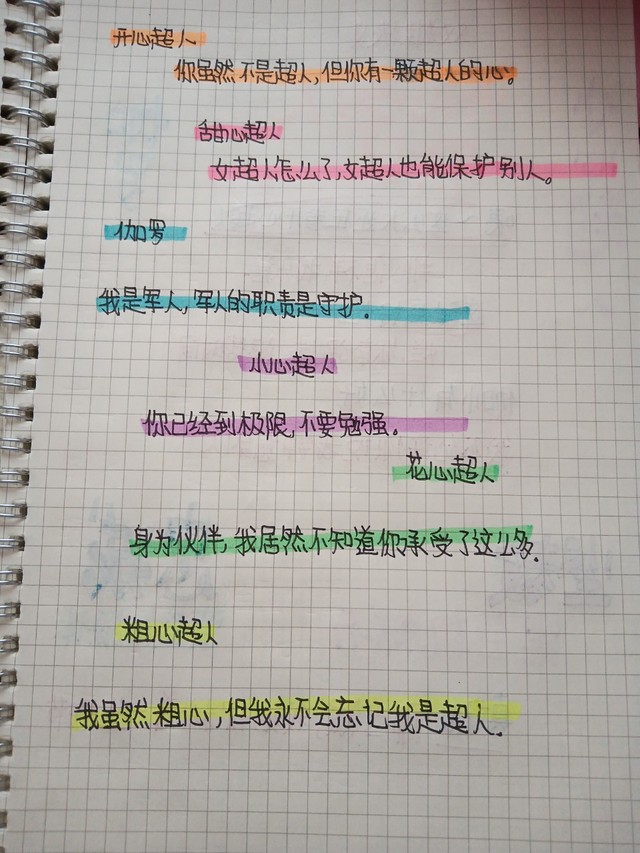 开心超人
你虽然不是超人,但你有一颗超人的心。
甜心超人
女超人怎么了,女超人也能保护别人。
伽罗
我是军人,军人的职责是守护.
小心超人
你已经到极限,不要勉强。
花心超人
身为伙伴,我居然不知道你承受了这么多.
粗心超人
我虽然粗心,但我永不会忘记我是超人.